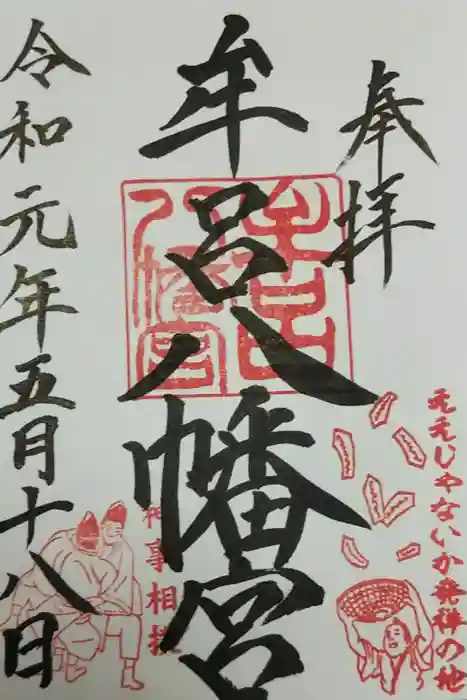 奉拝
牟呂八幡宮
令和元年五月十八日
牟呂八幡宮
神事相撲
ええじゃないか発祥の地